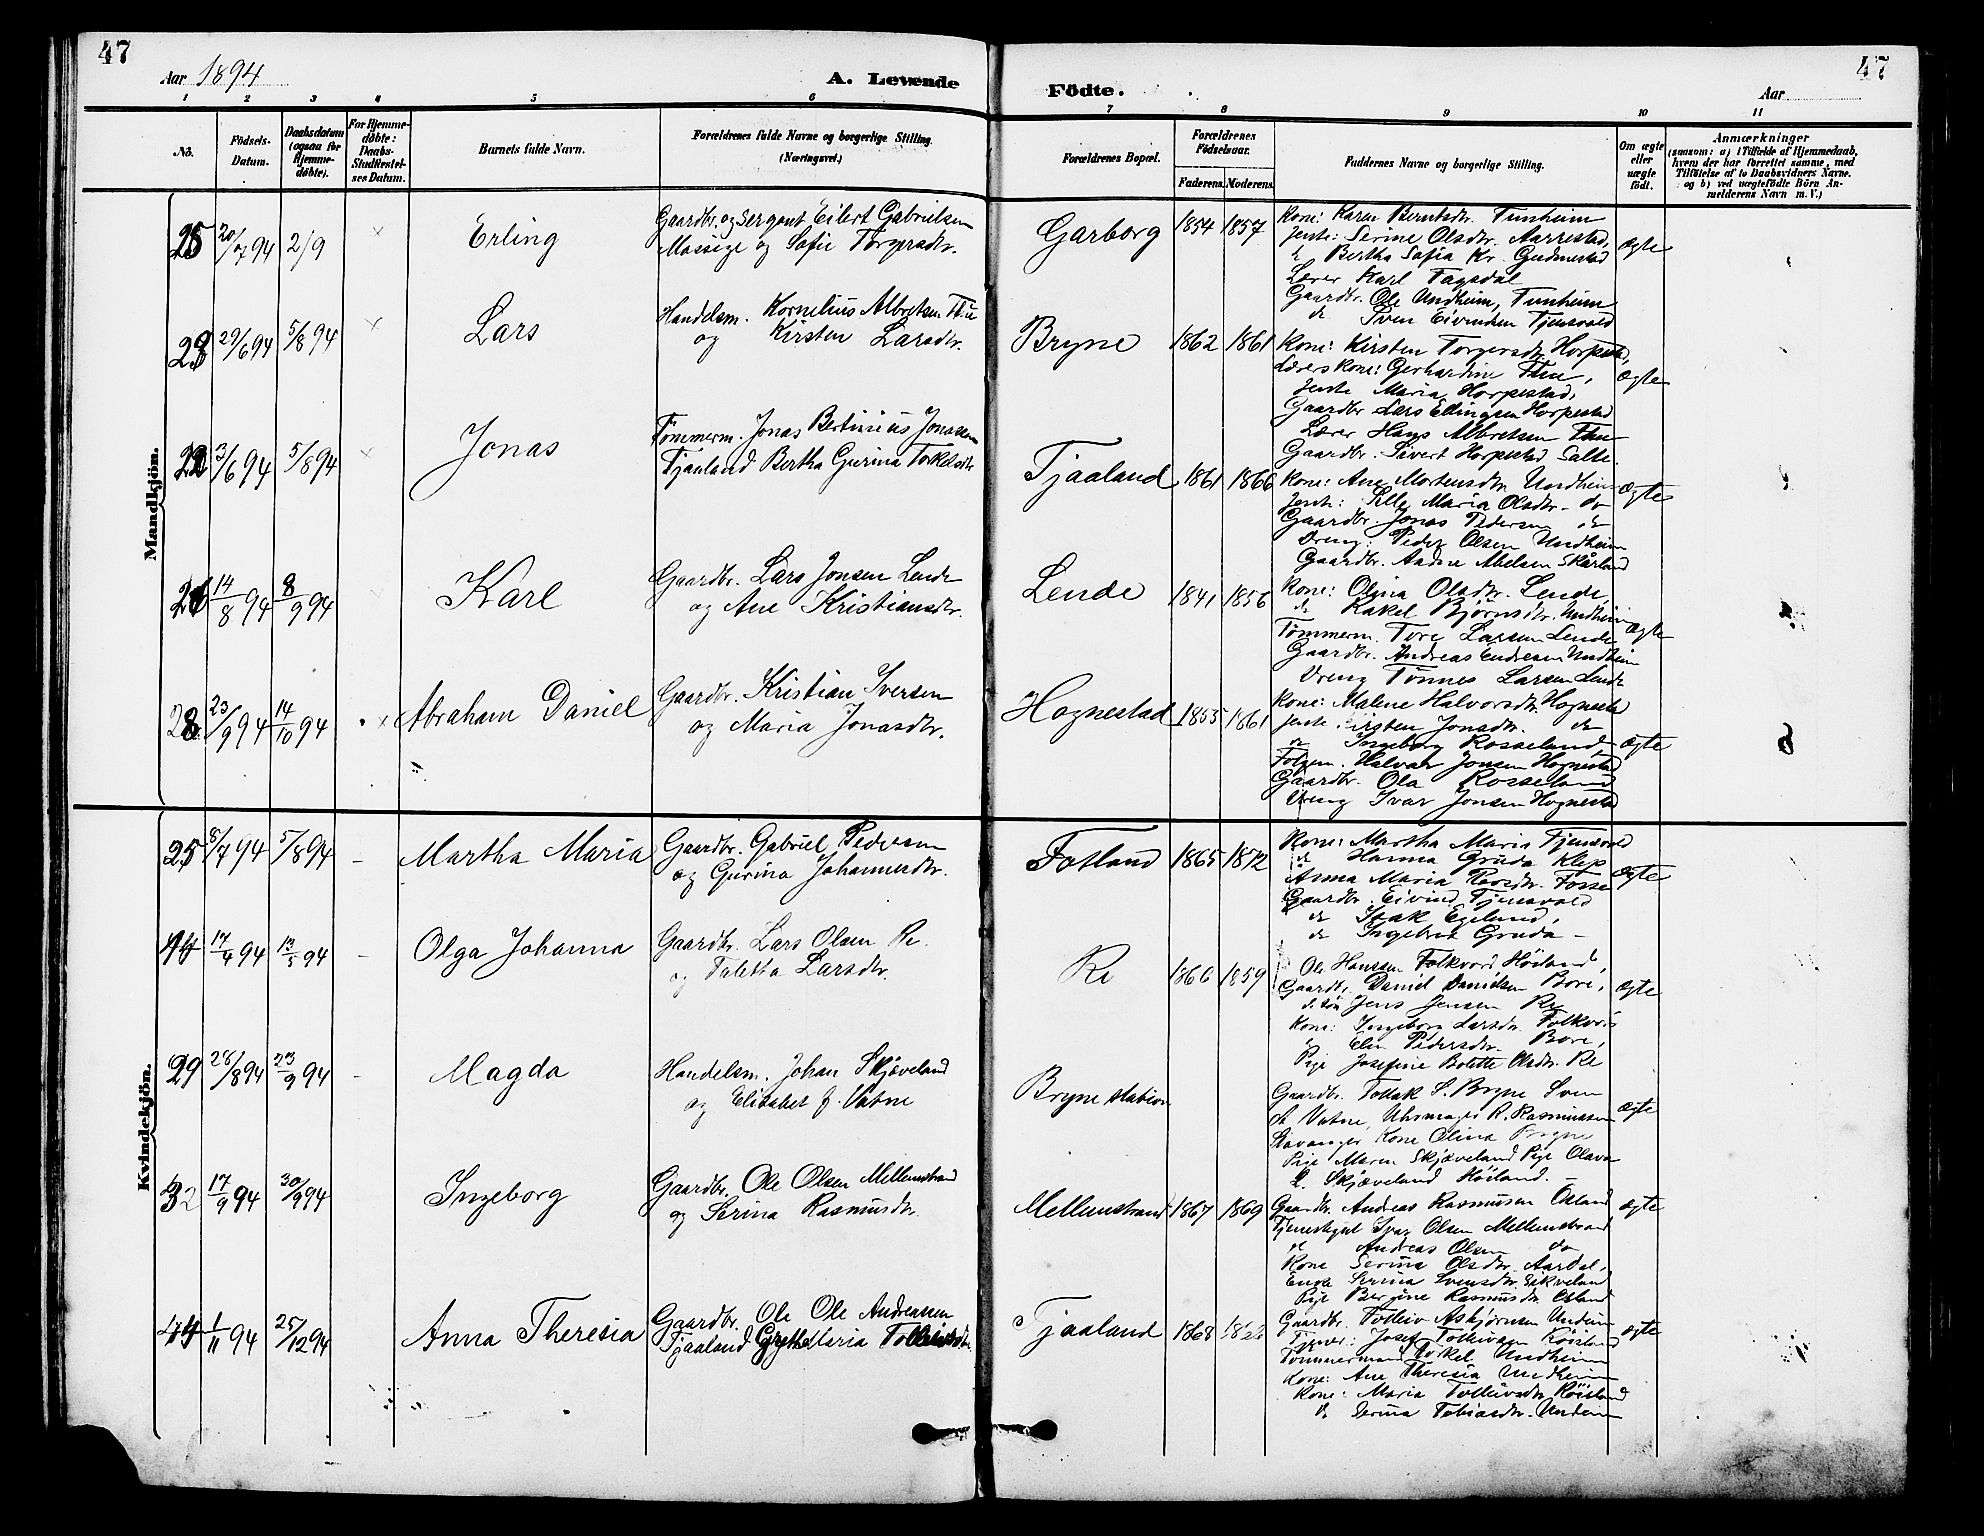 47
47
Aar 1894
A. Levende
Födte.
Aar
1 2 3 4 5 6 7 8 9 10 11
No.
Födsels-Datum.
Daabsdatum (ogsaa for Hjemmedøbte).
For Hjemmedøbte: Daabs-Stadfæstelses Datum.
Barnets fulde Navn.
Forældrenes fulde Navne og borgerlige Stilling. (Næringsvei.)
Forældrenes Bopæl.
Forældrenes Födselsaar.
Faderens. Moderens.
Faddernes Navne og borgerlige Stilling.
Om ægte eller uægte födt.
Anmærkninger
(saasom: a) i Tilfælde af Hjemmedaab, hvem der har forrettet samme, med Tilföielse af to Daabsvidners Navne. og b) ved uægtefödte Börn Anmelderens Navn m. V.)
Mandkjön.
25 20/07 94 2/9 × Erling
Gaardbr. og Sergant Eilert Gabrielsen
Massige og Sofie Torgersdtr.
Garborg 1854 1857
Kone: Karen Berntsdtr. Tunheim
Jente: Serine Olsdtr. Aarrestad,
d Bertha Sofia Kr. Gudmestad
Lærer Karl Tagsdal
Gaardbr. Ole Undheim, Tunheim
do Sven Eivindsen Tjensvold
ægte
23 29/6 94 5/8 94 × Lars
Handelsm. Kornelius Albretsen Thu
og Kirsten Larsdtr.
Bryne 1862 1861
Kone: Kirsten Torgersdtr. Horpestad,
Lærers Kone: Gerhardine Thu,
Jente Maria Horpestad,
Gaardbr Lars Ellingsen Horpestad
Lærer Hans Albretsen Thu
Gaardbr. Sivert Horpestad Salte.
ægte
22 3/6 94 5/8 94 × Jonas
Tømmerm. Jonas Bertinius Jonassen
Tjaaland Bertha Gurina Torkelsdtr
Tjaaland 1861 1866
Kone: Ane Mortensdtr Undheim
Jente: Lille Maria Olsdtr. do
Gaardbr. Jonas Pedersen do
Dreng: Peder Olsen Undheim
Gaardbr. Andne Abelsen Skårland
ægte
26 14/8 94 8/9 94 Karl
Gaardbr. Lars Jonsen Lende
og Ane Kristiansdtr.
Lende 1841 1856
Kone: Olina Olsdtr. Lende,
do Rakel Bjørnsdtr. Undheim
Tømmerm. Tore Larsen Lende
Gaardbr. Andreas Endresen Undheim
Dreng Tönnes Larsen Lende
ægte
28 23/9 94 14/10 94 × Abraham Daniel
Gaardbr. Kristian Iversen
og Maria Jonasdtr.
Hognestad 1855 1861
Kone: Malene Halvorsdtr. Hognestad
Jente Kirsten Jonsdtr. do
do Ingeborg Rosseland
Halvar Jonsen Hognestad
Gaardbr. Ola Rosseland
Dreng Ivar Jonsen Hognestad
ægte
Kvindekjön.
25 8/7 94 5/8 94 – Martha Maria
Gaardbr. Gabriel Pedersen
og Gurina Johannesdtr.
Fotland 1865 1872
Kone: Martha Maria Tjensvold
do Hanna Gruda Klep
Anna Maria Fosse
Gaardbr. Eivind Tjensvold
do Isak Egelund,
do Ingebret Gruda –
ægte
14 17/4 94 13/5 94 – Olga Johanna
Gaardbr. Lars Olsen Re.
og Taletta Larsdtr.
Re 1860 1859
Ole Hansen Folkvord Höiland,
Gaardbr. Daniel Danielsen Bore,
Jens Jensen Re
Kone: Ingeborg Larsdtr. Folkvord
" Elin Pedersdtr. Bore,
Pige Josefine Bolette Olsdtr. Re
ægte
29 28/8 94 23/9 94 – Magda
Handelsm. Johan Skjæveland
og Elisabet f. Vatne
Bryne station
Gaardbr. Tollak S. Bryne Sven
Vatne, Uhrmager R. Rasmussen
Stavanger Kone Olina Bryne
Pige Maren Skjæveland Pige Olava
Skjæveland Höiland. –
ægte
32 17/9 94 30/9 94 Ingeborg
Gaardbr. Ole Olsen Mellemstrand
og Serina Rasmusdtr.
Mellemstrand 1867 1869
Gaardbr. Andreas Rasmussen Östland
Ivar Olsen Mellemstrand
do Andreas Olsen do
Kone Serina Olsdtr. Aardal,
Enga Serina Svensdtr. Sikveland
Pige Bergine Rasmusdtr.
ægte
44 1/11 94 25/12 94 Anna Theresia
Gaardbr. Ole Ole Andreassen
Tjaaland Grethe Maria
Tjaaland 1868
Gaardbr. Tolleiv Asbjørnsen Undeim
Tjener: Josef Tolleivsen Röisland
Tømmermand Torkel Undheim
Kone: Ane Theresia Undheim
Kone: Maria Tolleivsdtr. Röisland
do Serina Tobiasdtr. Undeim
ægte